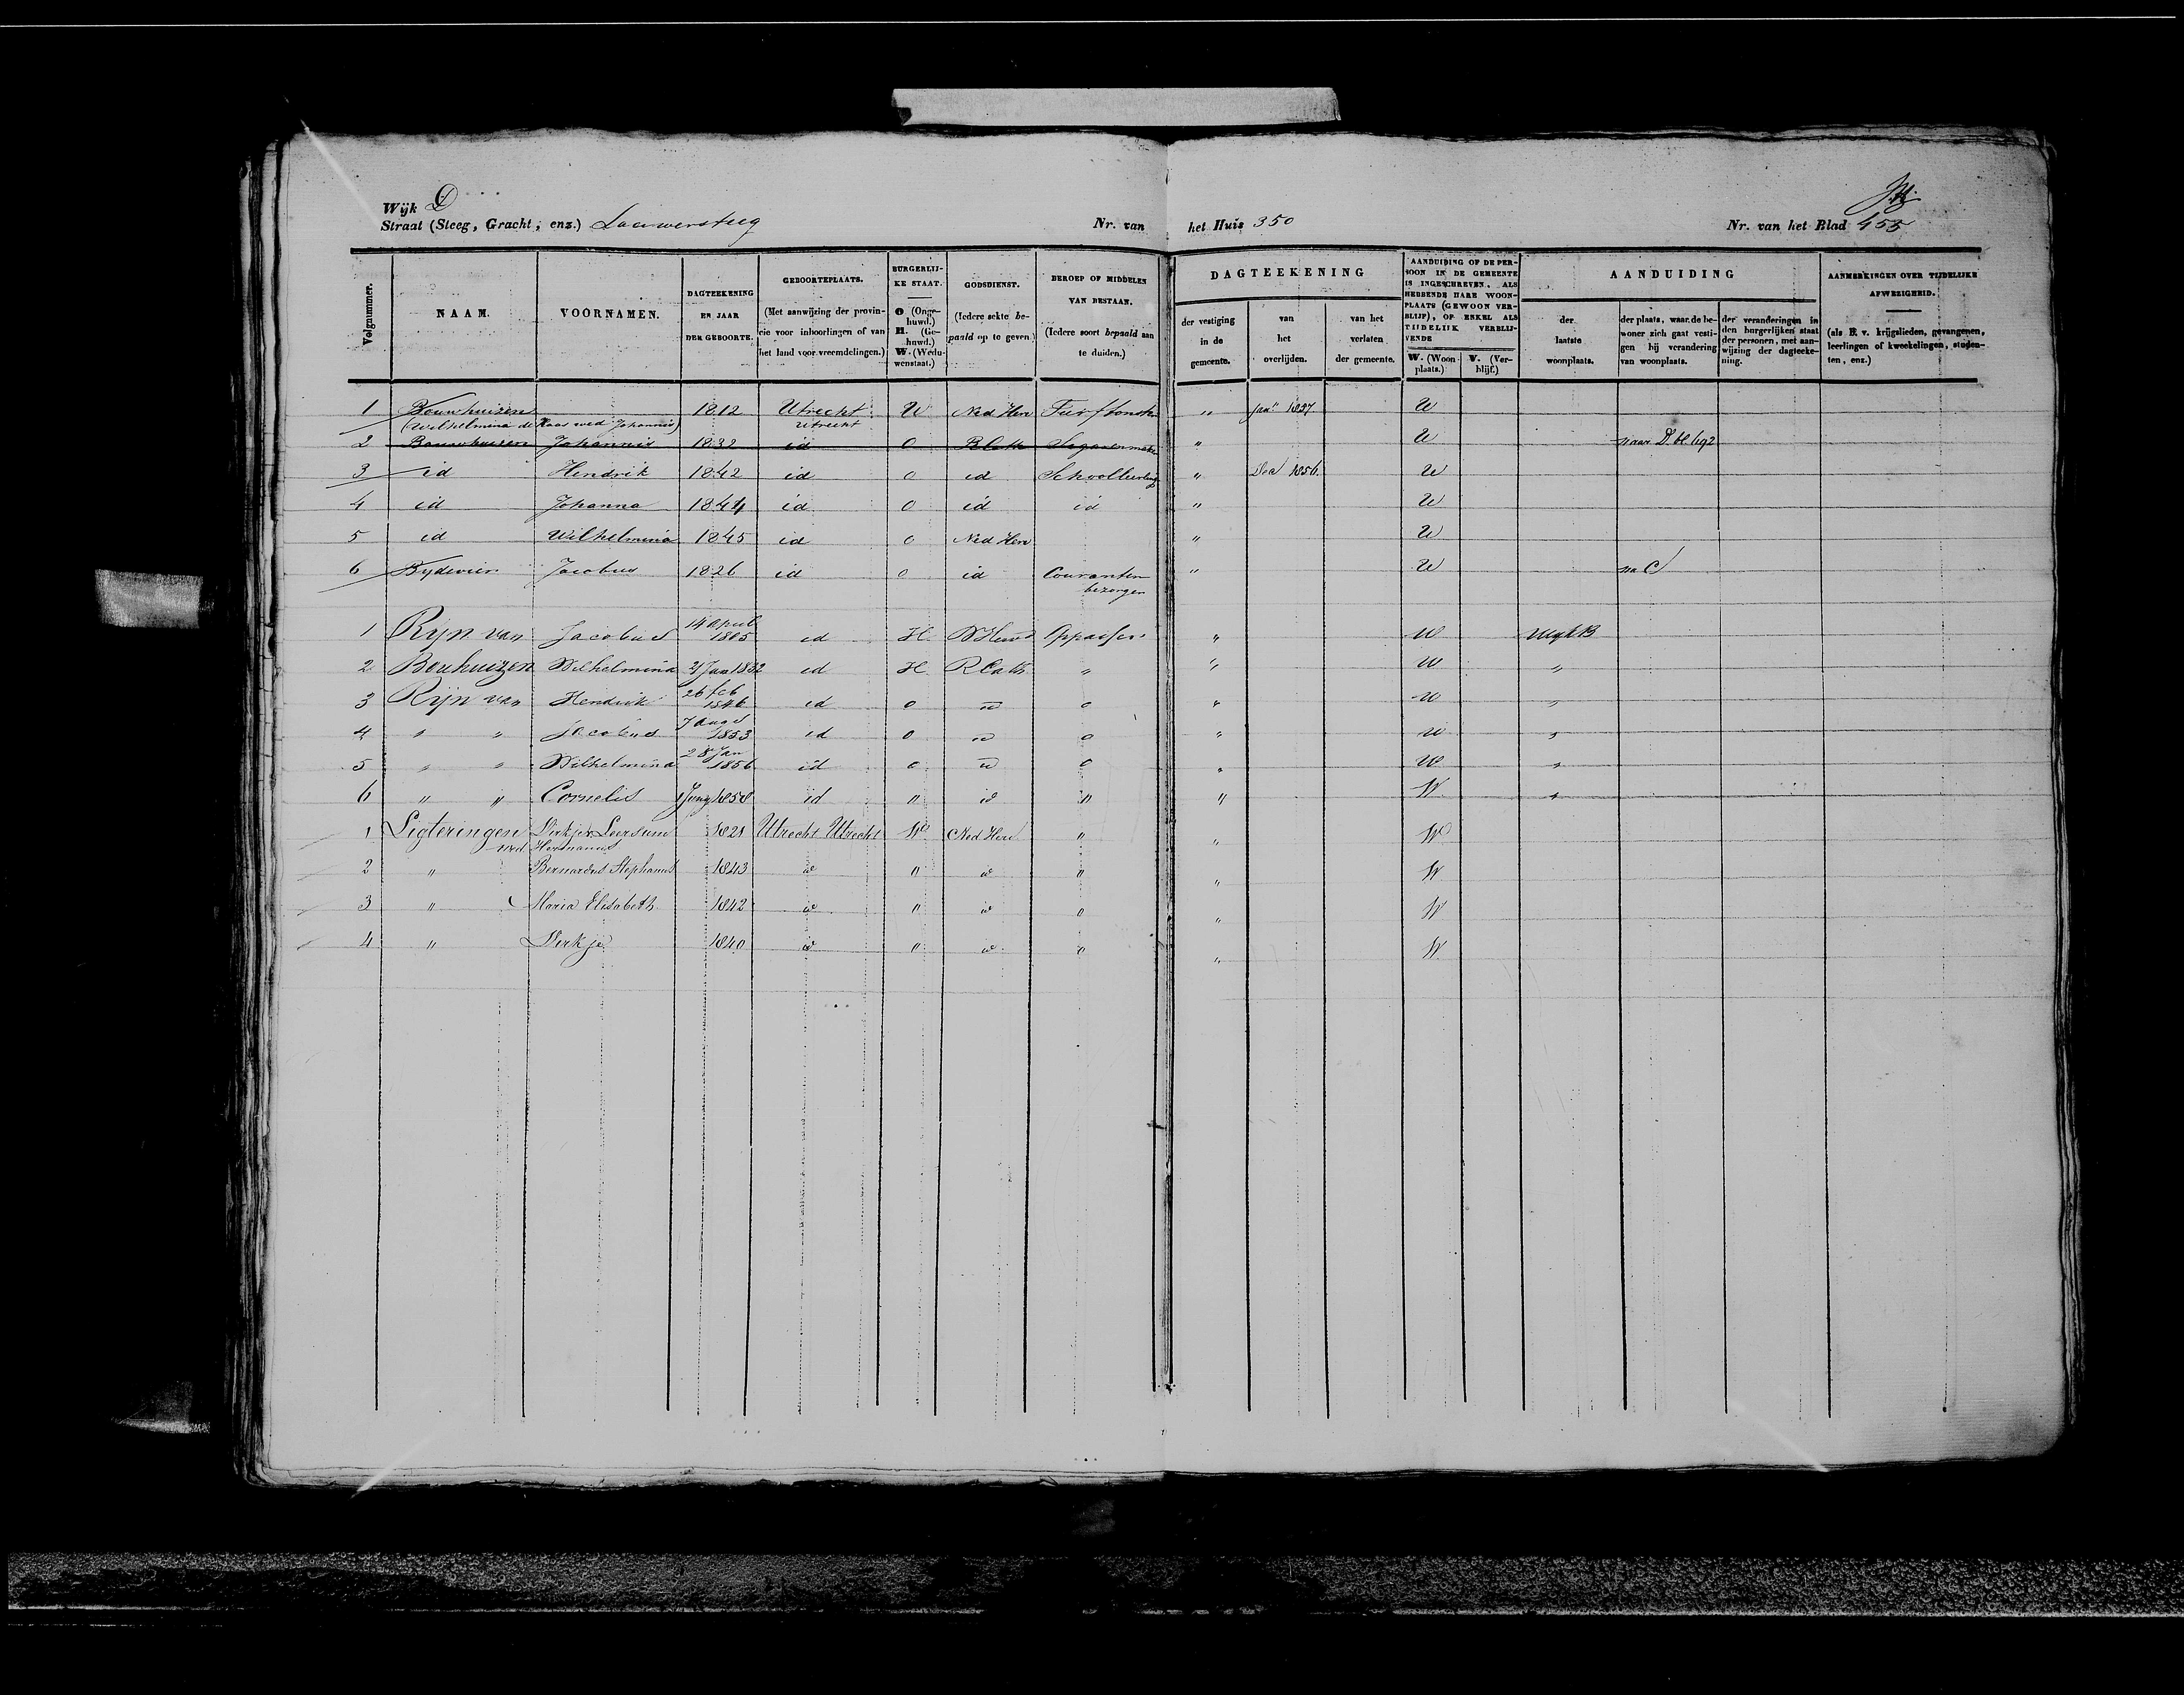 Wijk D
Straat (Steeg, Gracht, enz.) Lauwersteeg Nr. van het Huis 350 Nr. van het Blad 455
Volgnummer.
NAAM.
VOORNAMEN.
DAGTEEKENING EN JAAR DER GEBOORTE.
GEBOORTEPLAATS. (Met aanwijzing der provincie voor inboorlingen of van het land voor vreemdelingen.)
BURGERLIJKE STAAT. O (Ongehuwd.) H. (Gehuwd.) W. (Weduwenstaat.)
GODSDIENST. (Iedere sekte bepaald op te geven.)
BEROEP OF MIDDELEN VAN BESTAAN. (Iedere soort bepaald aan te duiden.)
DAGTEEKENING
der vestiging in de gemeente.
van het overlijden.
van het verlaten der gemeente.
AANDUIDING OF DE PERSOON IN DE GEMEENTE IS INGESCHREVEN, ALS HEBBENDE HARE WOONPLAATS (GEWOON VERBLIJF), OF ENKEL ALS TIJDELIJK VERBLIJVENDE
W. (Woonplaats.)
V. (Verblijf.)
AANDUIDING
der laatste woonplaats.
der plaats, waar de bewoner zich gaat vestigen bij verandering van woonplaats.
der veranderingen in den burgerlijken staat der personen, met aanwijzing der dagteekening.
AANMERKINGEN OVER TIJDELIJKE AFWEZIGHEID. (als B. v. krijgslieden, gevangenen, leerlingen of kweekelingen, studenten, enz.)
1 Bouwhuizen 1812 Utrecht W Ned Herv " Jan 1857 W
(Wilhelmina de Haas wed Johannis) Utrecht
2 Bouwhuizen Johannis 1832 id O R Cath Segarenmaker " W naar D. bl. 692
3 id Hendrik 1842 id O id Schoolleerling " Dec 1856. W
4 id Johanna 1844 id O id id " W
5 id Wilhelmina 1845 id O Ned Herv " W
6 Bydevier Jacobus 1826 id O id Couranten bezorger " W na C
1 Rijn van Jacobus 14 April 1805 id H N Herv Oppasser " W Wijk B
2 Bouhuizen Wilhelmina 21 Jan 1832 id H R Cath " " W "
3 Rijn van Hendrik 26 feb 1846 id O id O " W "
4 " " Jacobus 7 Aug 1853 id O id O " W "
5 " " Wilhelmina 28 Jan 1856 id O id O " W "
6 " " Cornelis 1858 id " id " " W "
1 Ligteringen Dirkje v Leersum 1821 Utrecht Utrecht W Ned Herv " " W
wed Hermanus
2 " Bernardus Stephanus 1843 id " id " " W
3 " Maria Elisabeth 1842 id " id " " W
4 " Dirkje 1840 id " id " " W